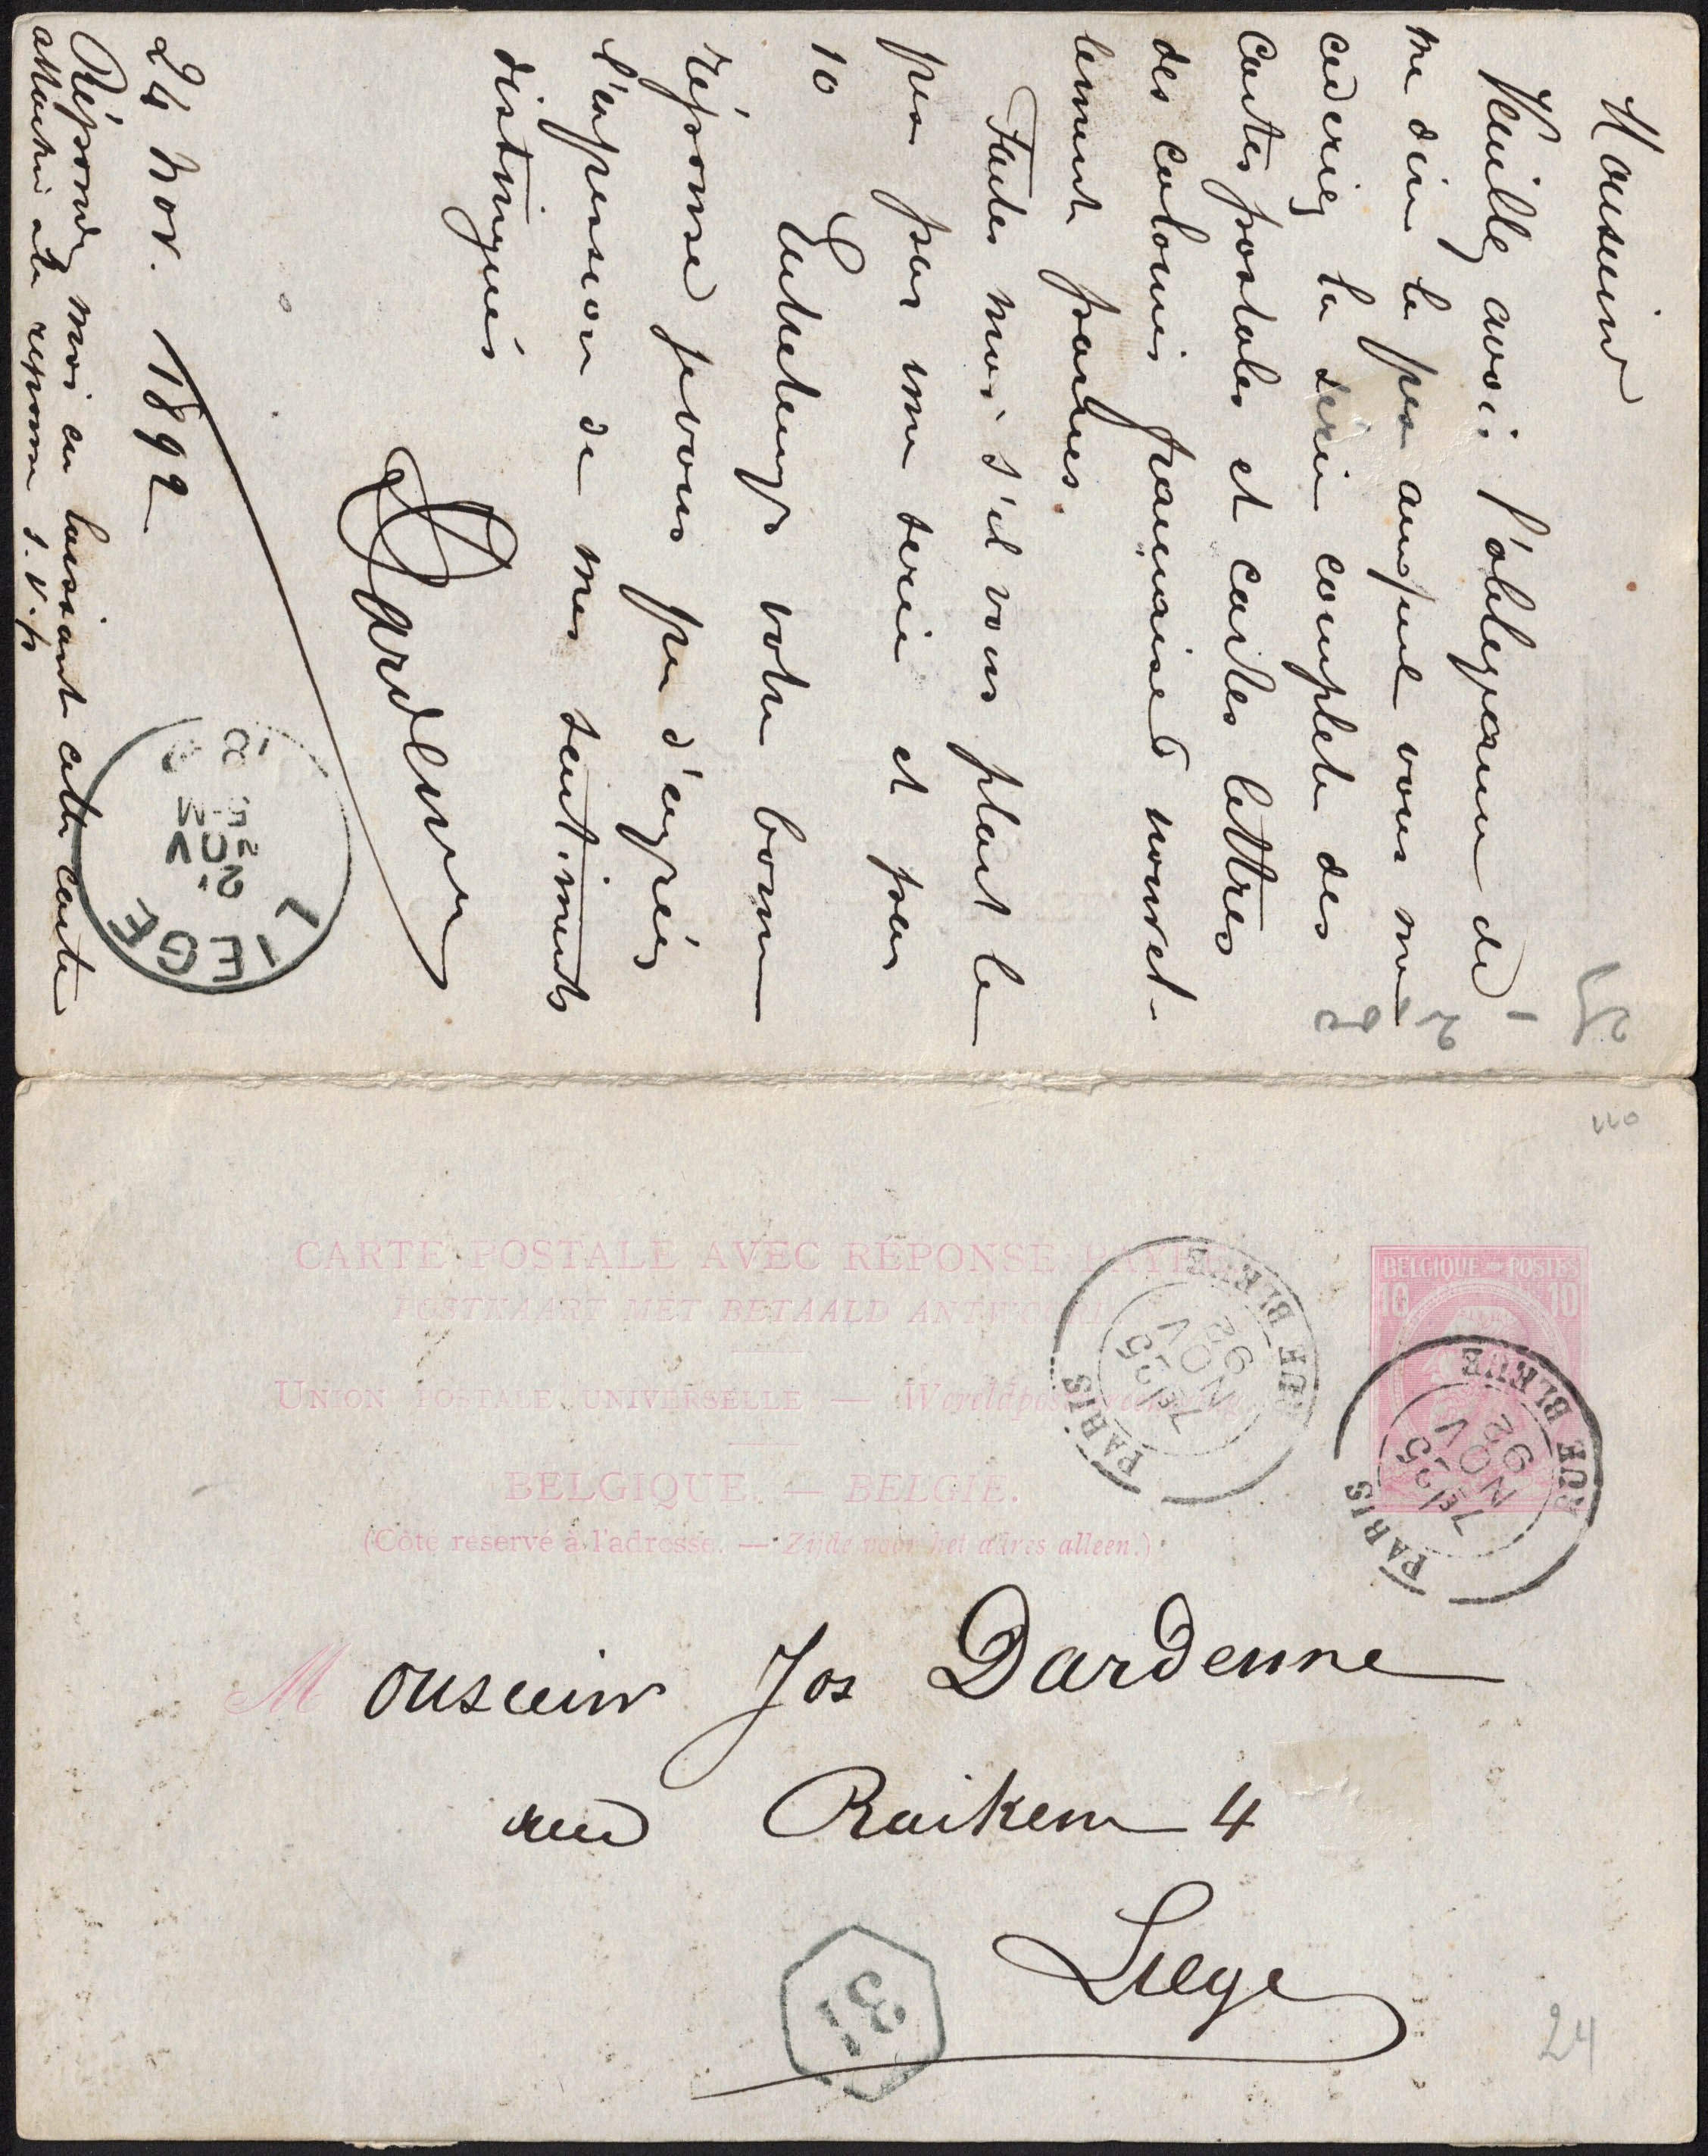 Monsieur
Veuillez avoir l'obligeance de
me dire le prix auquel vous me
cederiez la serie complete des
Cartes postales et cartes lettres
des colonies francaises nouvel-
lement parues.
Faites moi s'il vous plait le
prix par une serie et par
10
Entretemps votre bonne
réponse je vous prie d'agréez
l'expession de mes sentiments
distingués
Dardenne
24 Nov. 1892
Répondez moi en laissant cette carte
attachée a la reponse s.v.p
LIEGE
NOV
25
CARTE POSTALE AVEC RÉPONSE PAYÉE
POSTKAART MET BETAALD ANTWOORD
UNION POSTALE UNIVERSELLE — Wereldpostvereeniging
BELGIQUE. — BELGIE.
(Côté reservé à l'adresse. — Zijde voor het adres alleen.)
BELGIQUE POSTES
10 10
PARIS RUE BLEUE
7E 25
NOV
92
PARIS RUE BLEUE
7E 25
NOV
92
Monsieur Jos Dardenne
rue Raikem 4
Liege
31
24